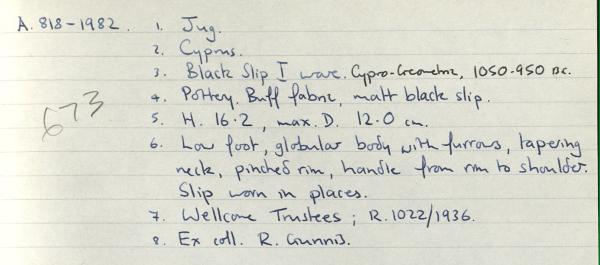 A. 818-1982. 1. Jug.
2. Cyprus.
3. Black Slip I ware. Cypro-Geometric, 1050-950 BC.
4. Pottery. Buff fabric, matt black slip.
5. H. 16.2, max. D. 12.0 cm.
673
6. Low foot, globular body with furrows, tapering
neck, pinched rim, handle from rim to shoulder.
Slip worn in places.
7. Wellcome Trustees; R.1022/1936.
8. Ex coll. R. Gunnis.